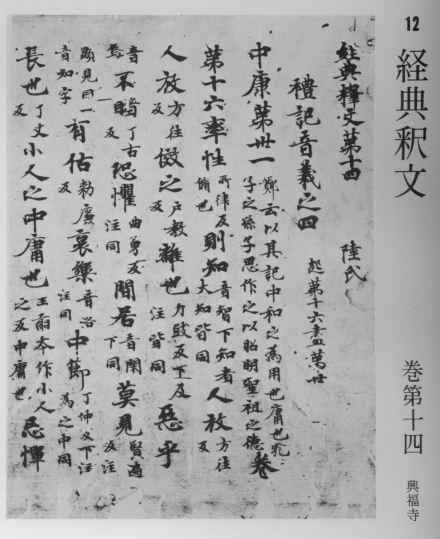 12
経典釈文
巻第十四
興福寺
經典釋文第十四 陸氏
禮記音義之四 起第十六盡第廿
中庸第卅一 鄭云以其記中和之為用也庸也孔子之孫子思作之以昭明聖祖之德 卷
第十六率性 所律反脩也 則知 音智下知者大知皆同 人放 方往反
人放 方往反 傚之 戶教反 離也 力豉反下及注皆同 惡乎
音烏 不睹 丁古反 恐懼 曲勇反注同 閒居 音閑下同 莫見 賢遍反注
顯見同一音如字 有佔 勑廉反 哀樂 音洛注同 中節 丁仲反下注為之中同
長也 丁丈反 小人之中庸也 王肅本作小人之反中庸也 忌憚